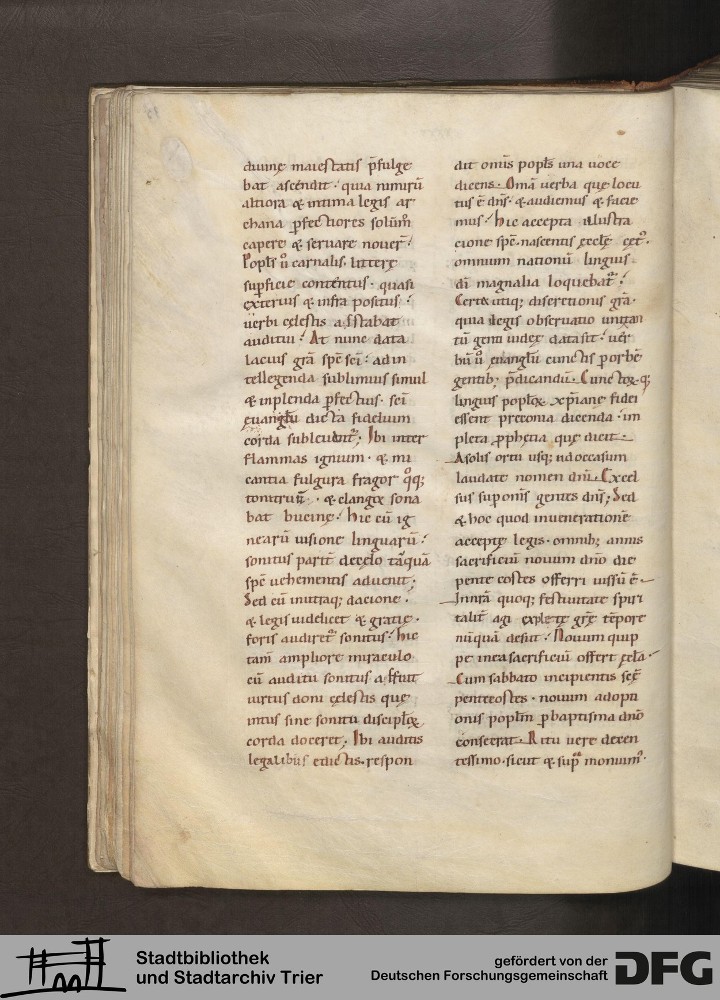 diuinę maiestatis p̄fulge
bat ascendit · quia nimirū
altiora & intima legis ar
chana ꝑfectiores solūm̄
capere & seruare nouer̄ ·
Popl̄s ū carnalis · litterę
suꝑficie contentus · quasi
exterius & infra positus ·
uerbi cęlestis astabat
auditui · At nunc data
lacius gr̄a sp̄s sc̄i · ad in
tellegenda sublimius simul
& inplenda ꝑfectius · sc̄i
euangl̄ii dicta fidelium
corda subleuauit; Ibi inter
flammas ignium · & mi
cantia fulgura fragor qͦq;
tonitruū · & clangor sona
bat bucinę · Hic cū ig
nearū uisione linguarū ·
sonitus parit̄ de cęlo tāquā
sp̄s uehementis aduenit;
Sed cū in utraq; dacione ·
& legis uidelicet & gratię ·
foris audiret̄ sonitus · hic
tam̄ ampliore miraculo
cū auditu sonitus affuit
uirtus doni cęlestis que
intus sine sonitu discipl̄oꝝ
corda doceret; Ibi auditis
legalibus edictis · respon
dit om̄is popl̄s una uoce
dicens · Om̄a uerba que locu
tus ē dn̄s · & audiemus & facie
mus · hic accepta illustra
cione sp̄s · nascentis ęccl̄ę cętꝰ ·
omnium nationū linguis ·
dī magnalia loquebat̄ ·
Certa utiq; discretionis gr̄a ·
quia legis obseruatio uni tan
tū genti iudeę data sit · uer
bū ū euangl̄ii cunctis ꝑ orbē
gentib; p̄dicandū · Cunctoꝝq;
linguis popl̄oꝝ xp̄iane fidei
essent preconia dicenda · im
pleta ꝓphetia que dicit ·
A solis ortu usq; ad occasum
laudate nomen dn̄i · Excel
sus suꝑ om̄s gentes dn̄s; Sed
& hoc quod in uenerationē
acceptę legis · omnib; annis
sacrificiū nouum dn̄o die
pentecostes offerri iussū ē ·
In nr̄a quoq; festiuitate spiri
talit̄ agi explete grę tēpore
nūquā desiit · Nouum quip
pe in ea sacrificiū offert ęccl̄a ·
Cum sabbato incipientis sc̄ę
pentecostes · nouum adopti
onis popl̄m ꝑ baptisma dn̄o
consecrat · Ritu uere decen
tissimo · sicut & supͣ monuimꝰ ·
Stadtbibliothek
und Stadtarchiv Trier
gefördert von der
Deutschen Forschungsgemeinschaft
DFG